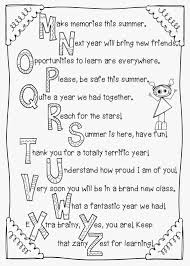 Make memories this summer.
Next year will bring new friends.
Opportunities to learn are everywhere.
Please, be safe this summer.
Quite a year we had together.
Reach for the stars!
Summer is here, have fun!
Thank you for a totally terrific year!
Understand how proud I am of you!
Very soon you will be in a brand new class.
What a fantastic year we had!
Xtra brainy, Yes, you are! Keep
that zany Zest for learning!